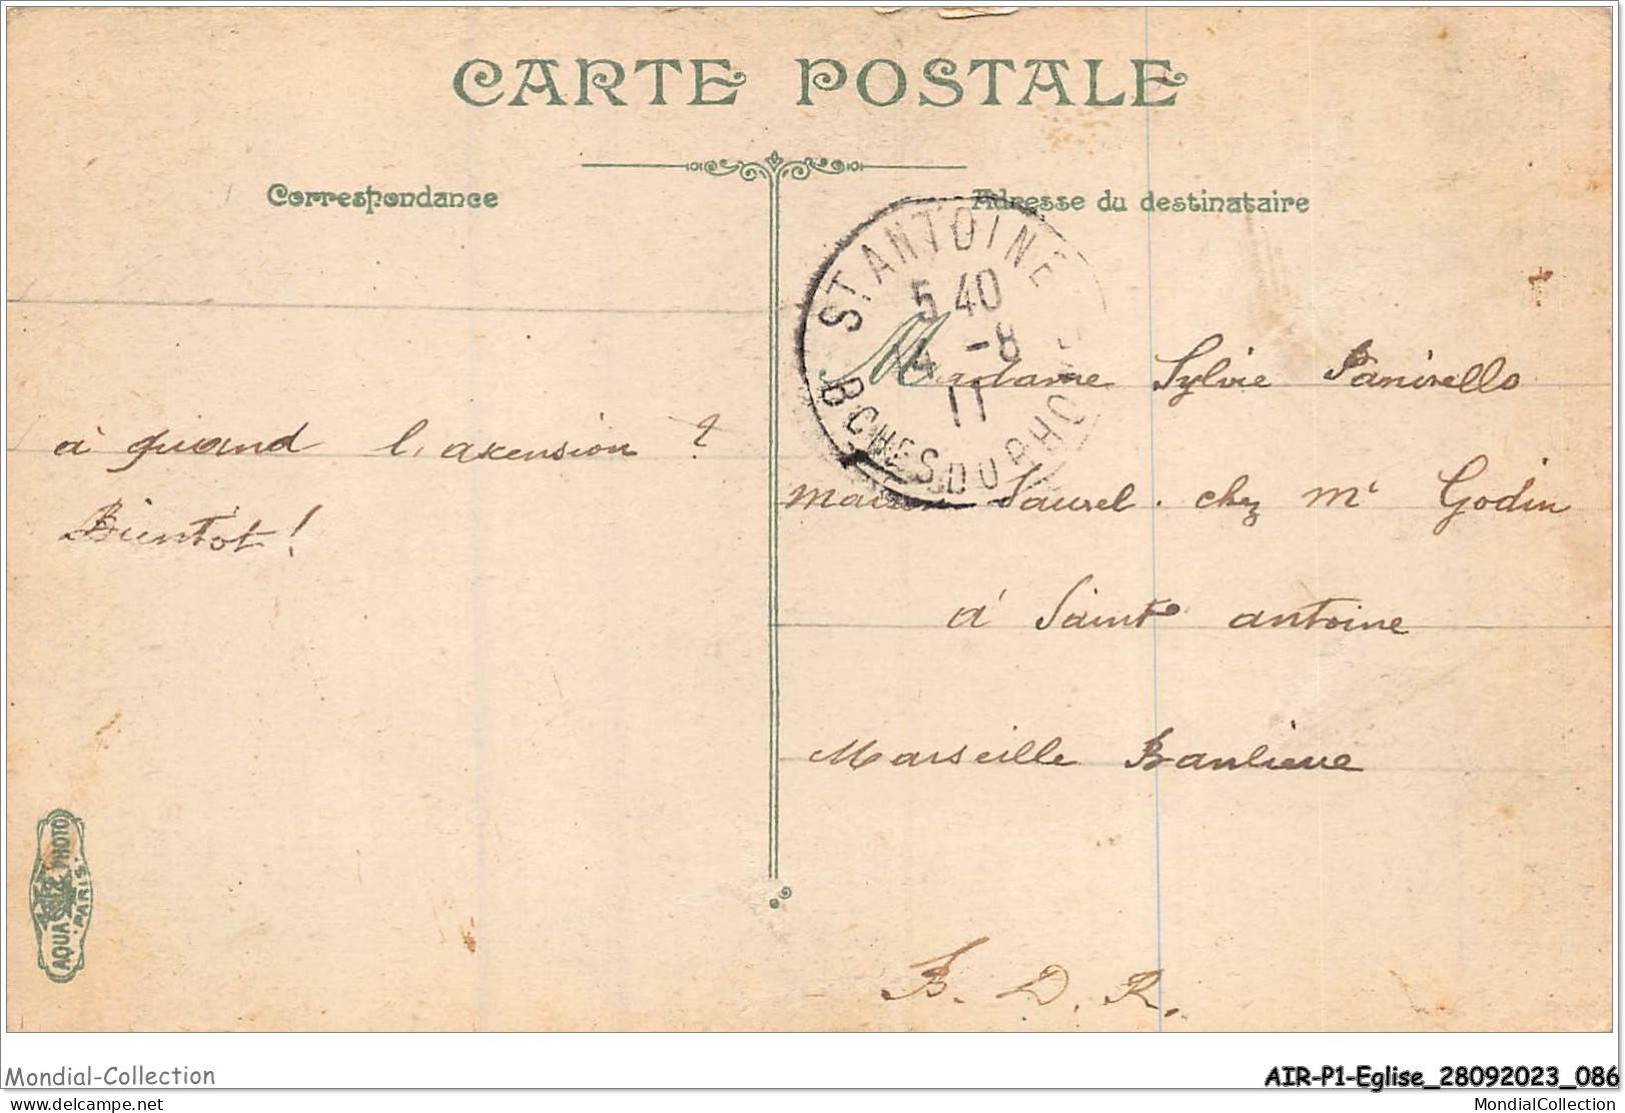 CARTE POSTALE
Correspondance
Adresse du destinataire
ST ANTOINE
5 40
4 -8
11
BCHES DU RHO
à quand l'axension ?
Bientôt !
Madame Sylvie Panisello
maison Saurel. chez Mr Godin
à Saint antoine
Marseille Banlieue
B. D. R.
AQUA PHOTO
PARIS
Mondial-Collection
AIR-P1-Eglise_28092023_086
delcampe.net
MondialCollection